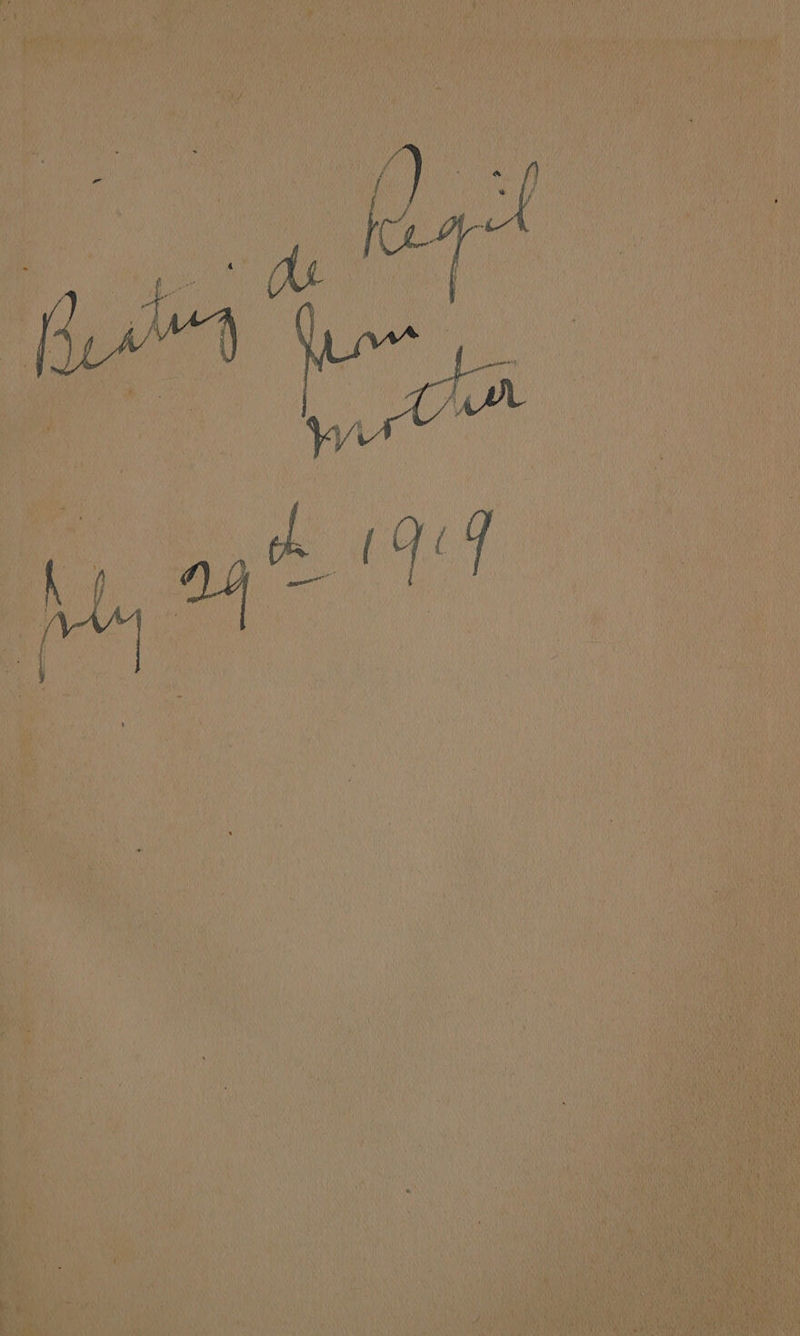 Beatriz de Regil
from
mother
July 29th 1919